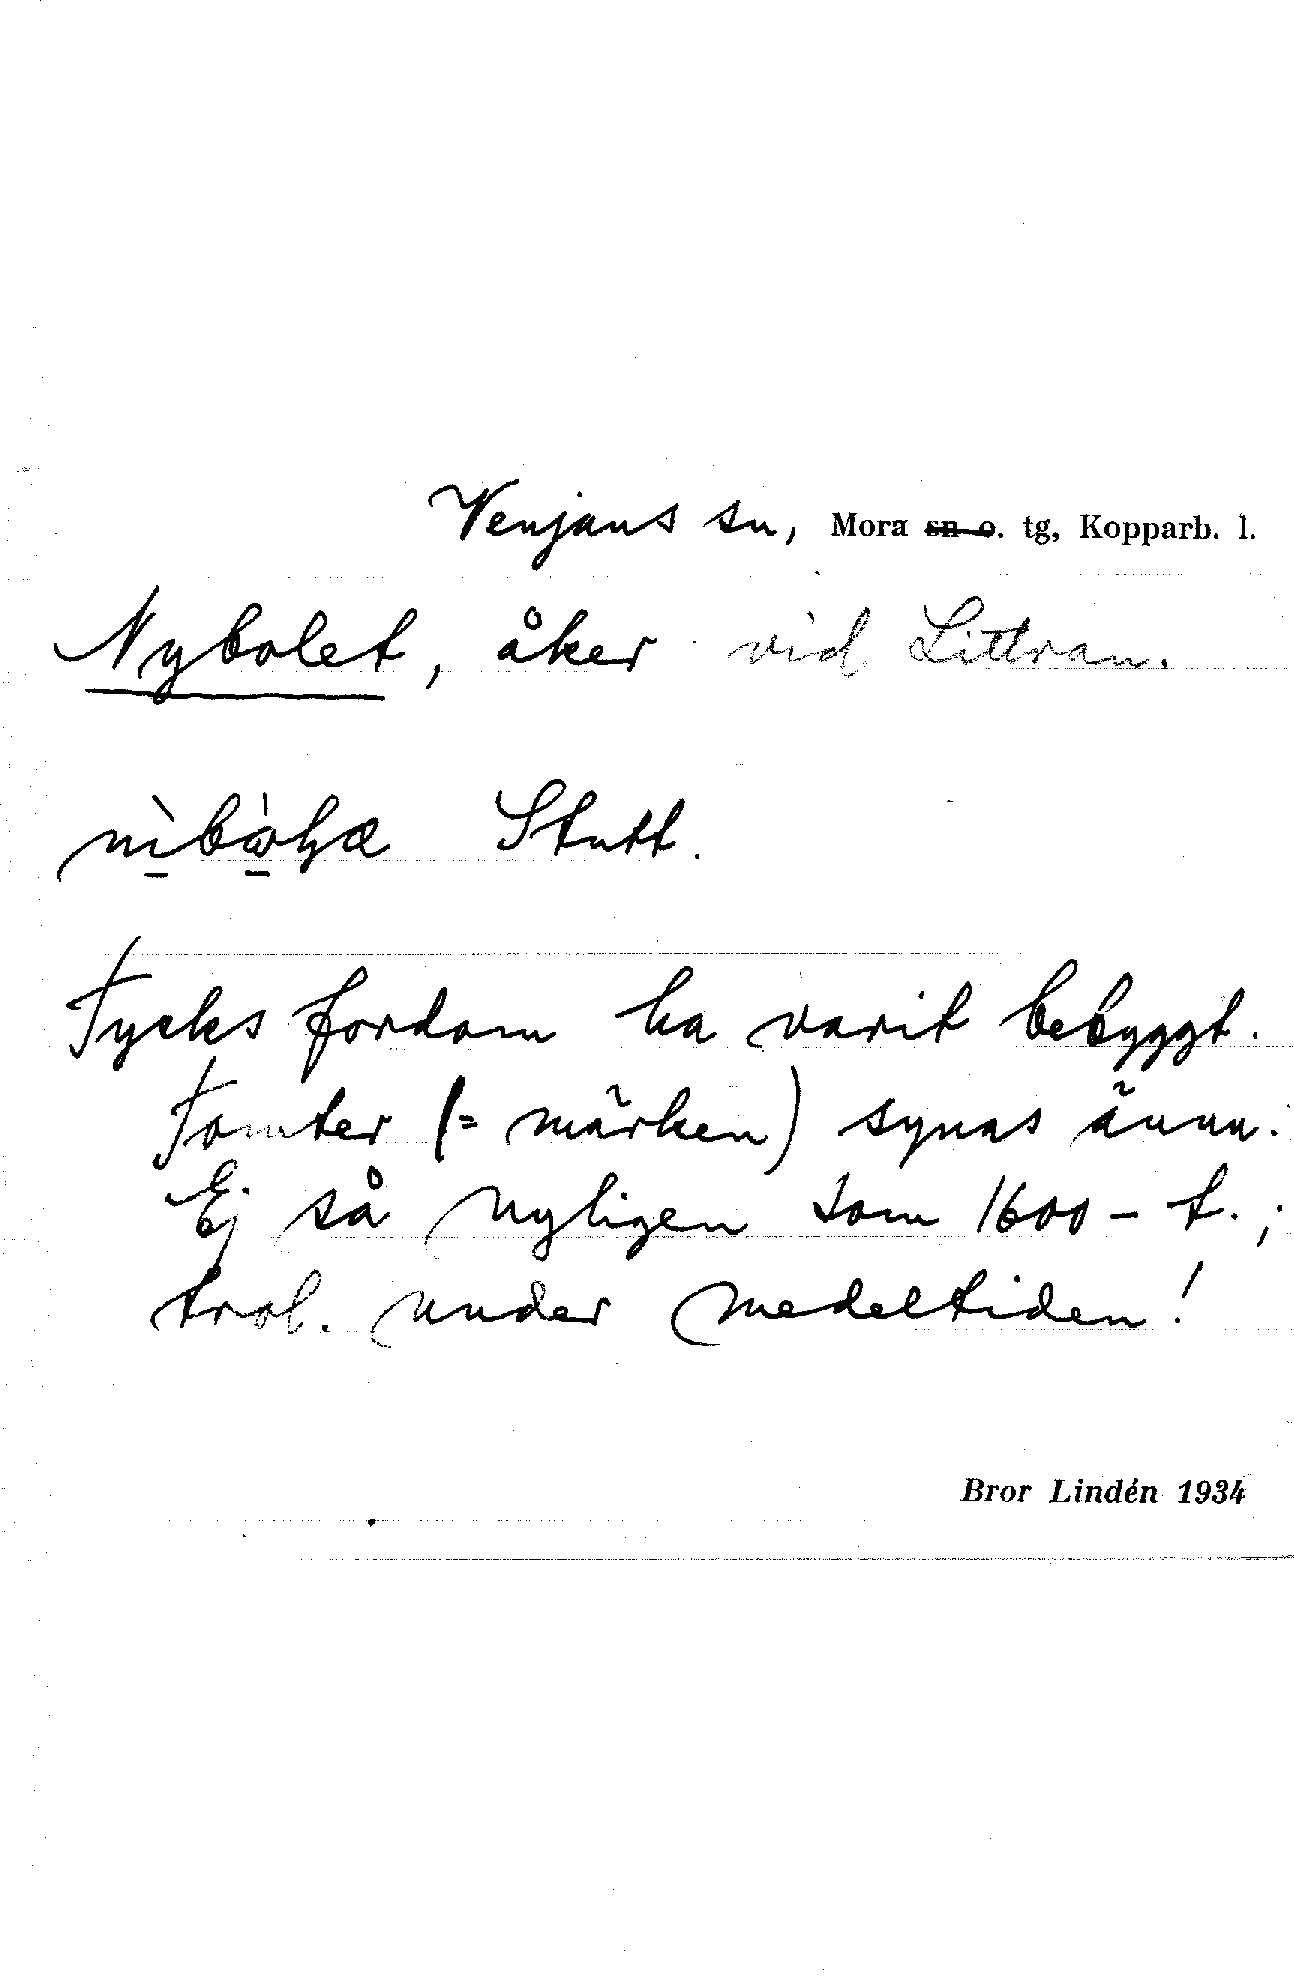 Venjans sn, Mora sn o. tg, Kopparb. l.
Nybolet, åker vid Littran.
Stutt.
Tycks fordom ha varit bebyggt.
Tomter (= märken) synas ännu.
Ej så nyligen som 1600-t.;
trol. under medeltiden!
Bror Lindén 1934